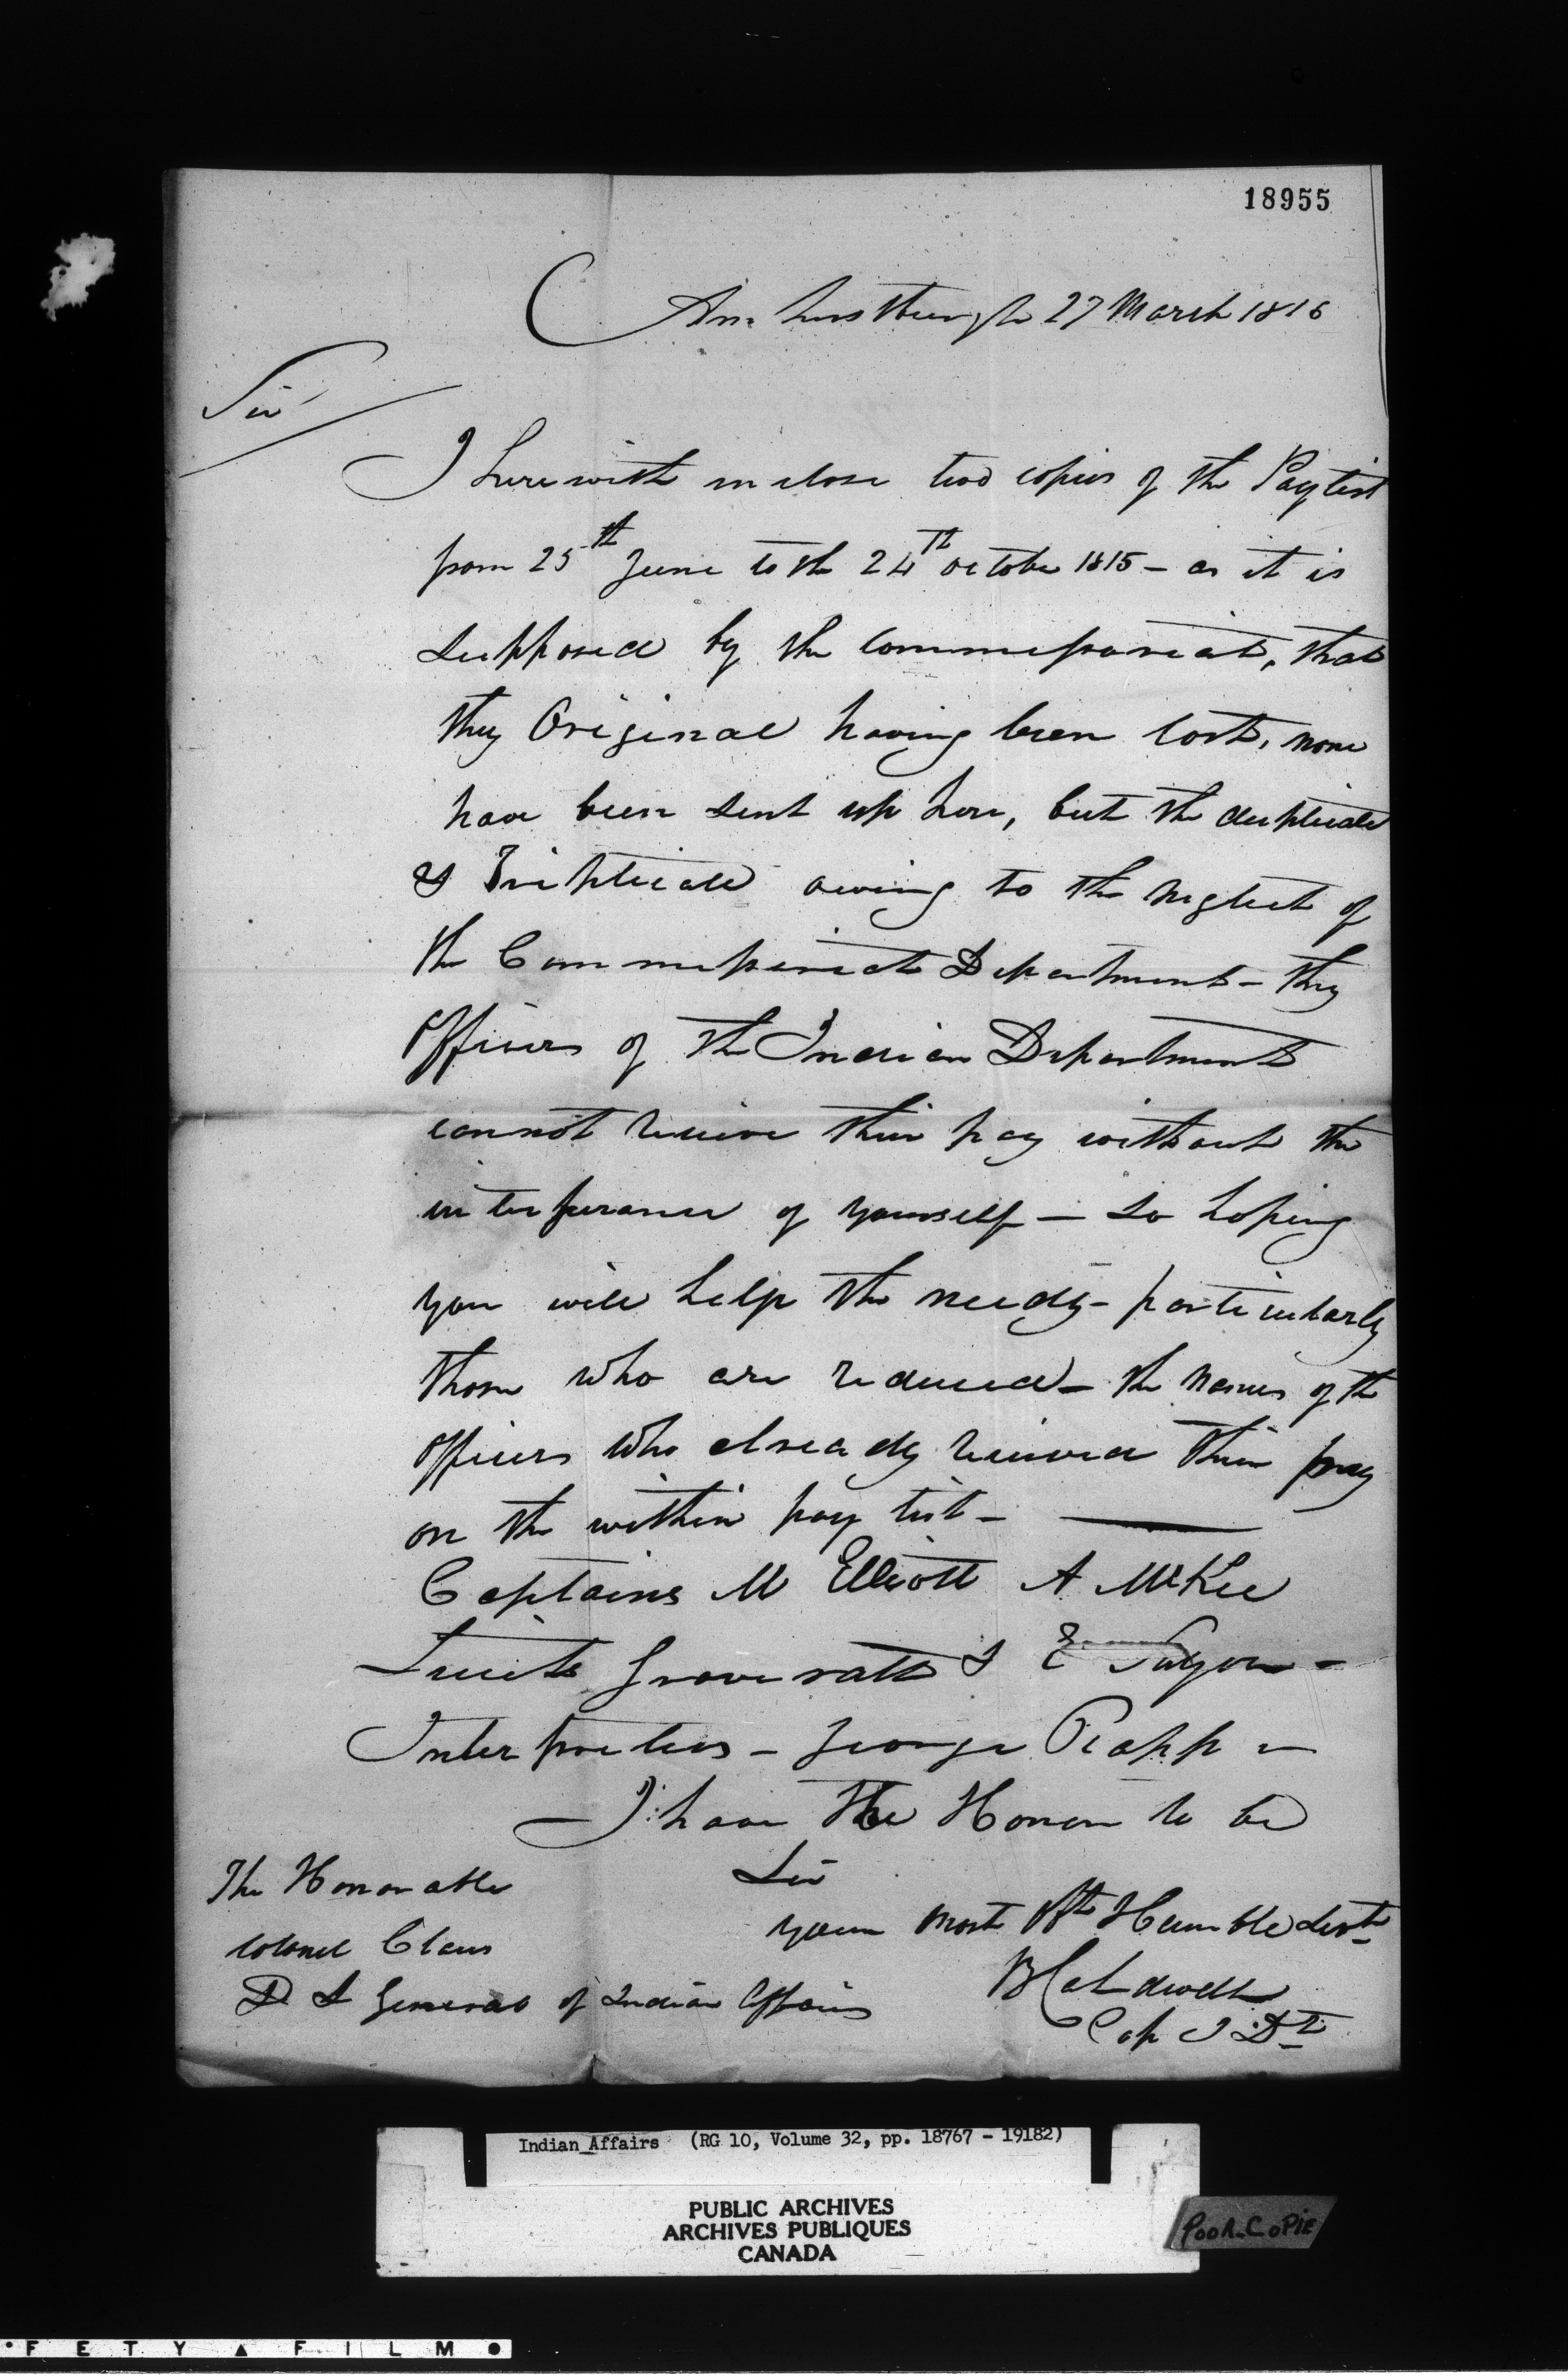 18955
Amherstburgh 27 March 1816
Sir
I herewith inclose two copies of the Paylist
from 25th June to the 24th october 1815 - as it is
supposed by the commissariat, that
they Original having been lost, none
have been sent up here, but the duplicate
& Triplicate owing to the neglect of
the Commissariat Department - they
Officers of the Indian Department
cannot receive their pay without the
interferance of yourself - so hoping
you will help the needy - particularly
those who are reduced - the names of the
officers who already received their pay
on the within pay list -
Captains M Elliott A McKee
Lieuts Graveratt & E
Interpreters - George
I have the Honor to be
Sir
your most Obt Humble Servt
The Honorable
colonel Claus
D I General of Indian Affairs
B Caldwell
Cap I Dt
Indian Affairs (RG 10, Volume 32, pp. 18767 - 19182)
PUBLIC ARCHIVES
ARCHIVES PUBLIQUES
CANADA
POOR COPIE
FETY ▲ FILM